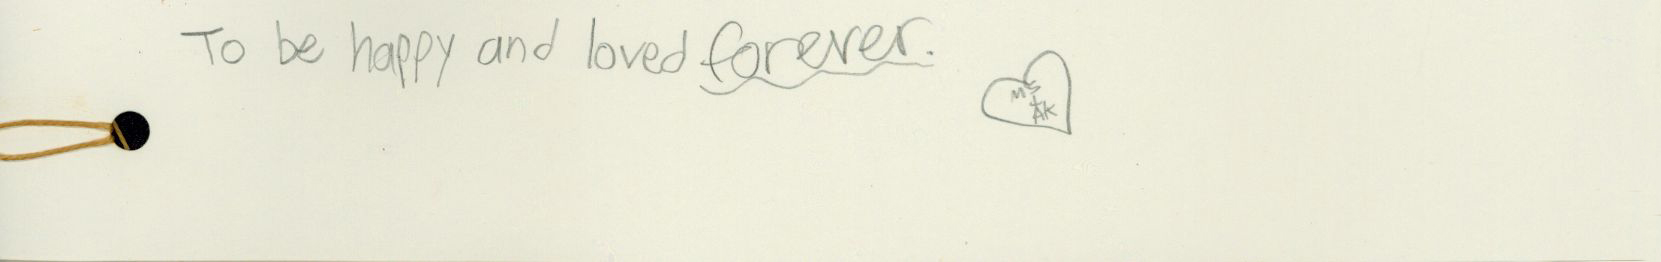 To be happy and loved forever.
MS
+AK